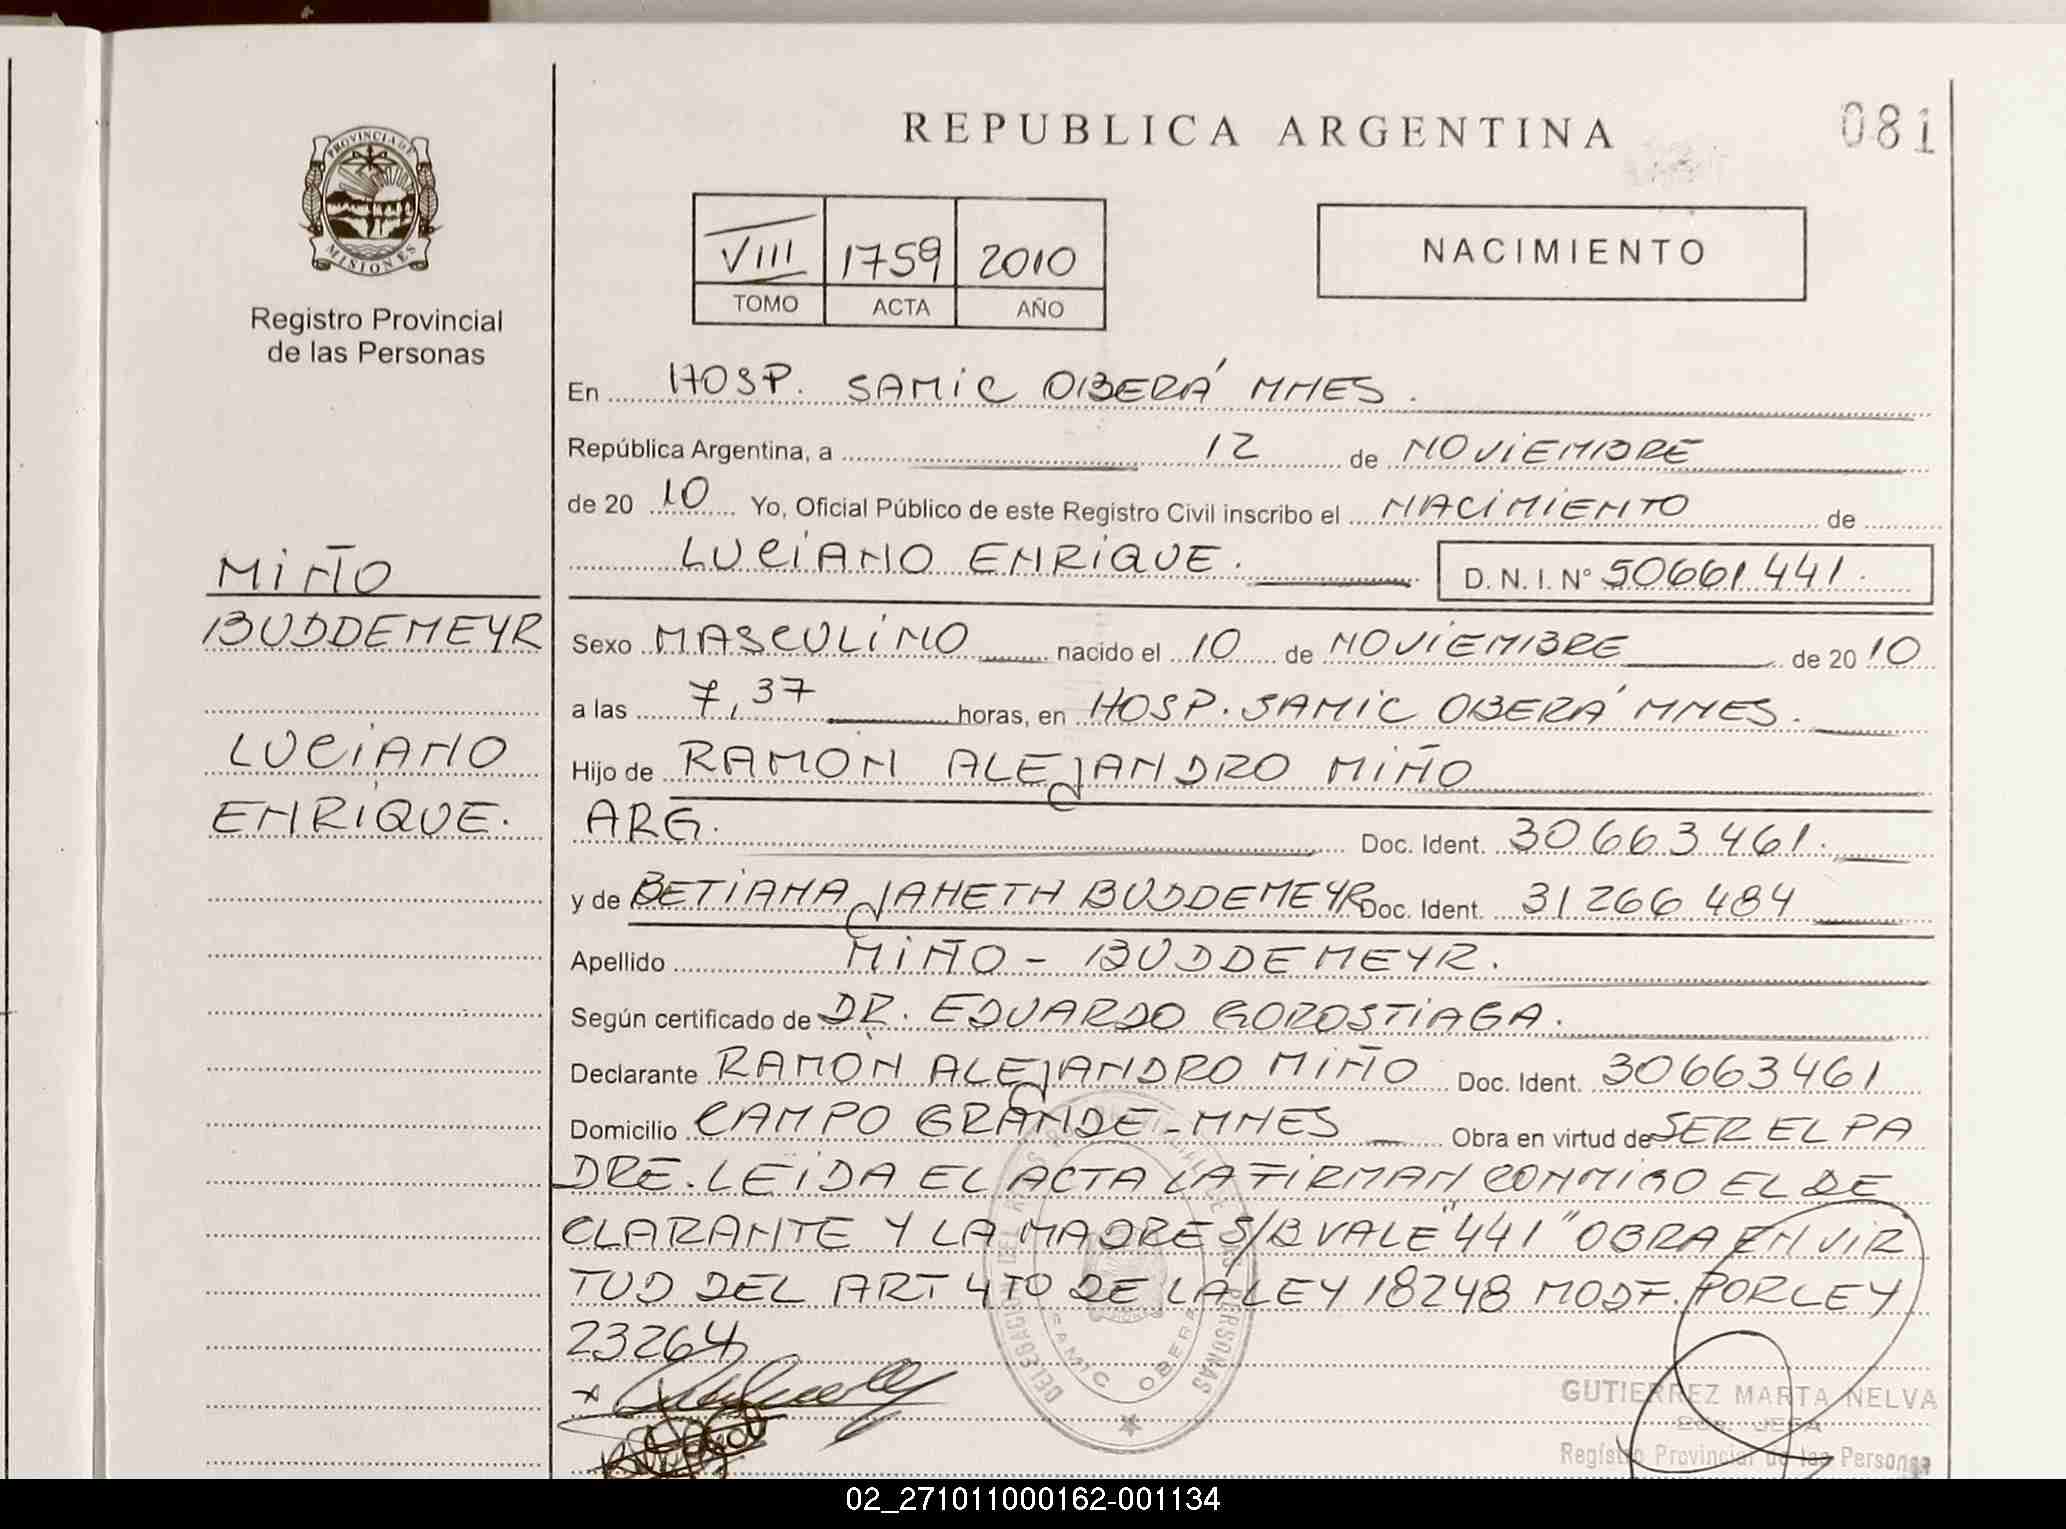 REPUBLICA ARGENTINA
081
PROVINCIA DE
MISIONES
Registro Provincial
de las Personas
VIII 1759 2010
TOMO ACTA AÑO
NACIMIENTO
En HOSP. SAMIC OBERÁ MNES.
República Argentina, a 12 de NOVIEMBRE
de 20 10 Yo, Oficial Público de este Registro Civil inscribo el NACIMIENTO de
LUCIANO ENRIQUE. D. N. I. N° 50661441.
MIÑO
BUDDEMEYR
LUCIANO
ENRIQUE.
Sexo MASCULINO nacido el 10 de NOVIEMBRE de 20 10
a las 7,37 horas, en HOSP. SAMIC OBERÁ MNES.
Hijo de RAMON ALEJANDRO MIÑO
ARG. Doc. Ident. 30663461.
y de BETIANA JANETH BUDDEMEYR Doc. Ident. 31266484
Apellido MIÑO - BUDDEMEYR.
Según certificado de DR. EDUARDO GOROSTIAGA.
Declarante RAMON ALEJANDRO MIÑO Doc. Ident. 30663461
Domicilio CAMPO GRANDE - MNES Obra en virtud de SER EL PA
DRE. LEIDA EL ACTA LA FIRMAN CONMIGO EL DE
CLARANTE Y LA MADRE S/B VALE "441" OBRA EN VIR
TUD DEL ART 4TO DE LA LEY 18248 MODF. POR LEY
23264
DELEGACION DEL REGISTRO PROVINCIAL DE LAS PERSONAS
SAMIC OBERA
GUTIERREZ MARTA NELVA
JEFA
Registro Provincial de las Personas
02_271011000162-001134